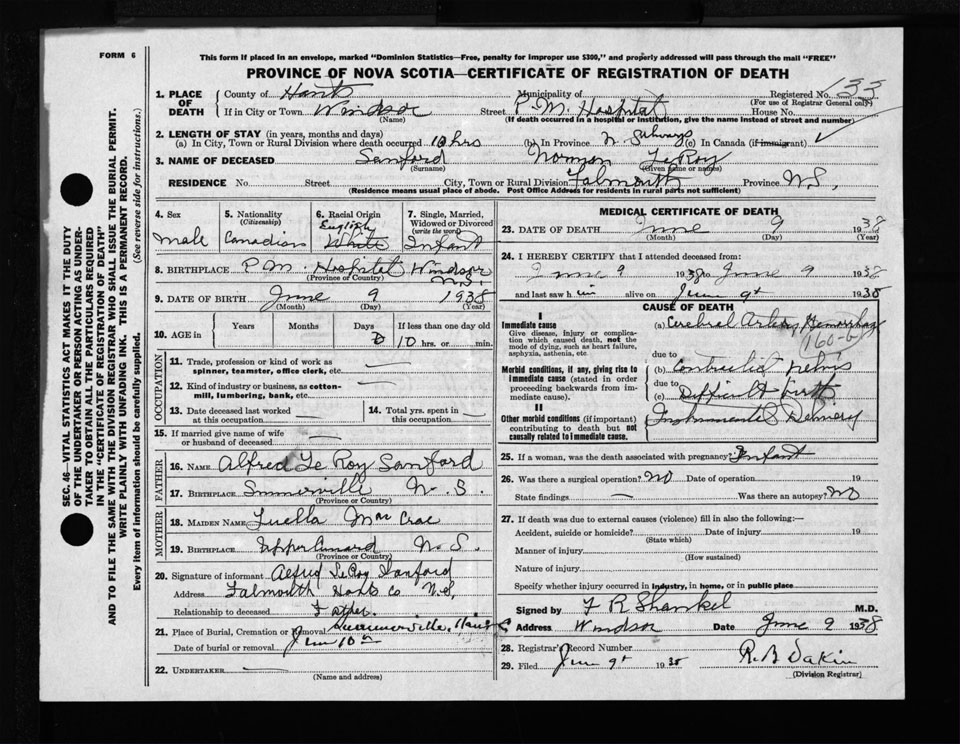 FORM 6
This form if placed in an envelope, marked "Dominion Statistics—Free, penalty for improper use $300," and properly addressed will pass through the mail "FREE"
PROVINCE OF NOVA SCOTIA—CERTIFICATE OF REGISTRATION OF DEATH
SEC. 46—VITAL STATISTICS ACT MAKES IT THE DUTY
OF THE UNDERTAKER OR PERSON ACTING AS UNDER-
TAKER TO OBTAIN ALL THE PARTICULARS REQUIRED
IN THE "CERTIFICATE OF REGISTRATION OF DEATH"
AND TO FILE THE SAME WITH THE DIVISION REGISTRAR WHO SHALL ISSUE THE BURIAL PERMIT.
WRITE PLAINLY WITH UNFADING INK. THIS IS A PERMANENT RECORD.
Every item of information should be carefully supplied. (See reverse side for instructions.)
1. PLACE OF DEATH County of Hants Municipality of Registered No. 33
(For use of Registrar General only)
If in City or Town Windsor Street P.M. Hospital House No.
(Name) (If death occurred in a hospital or institution, give the name instead of street and number)
2. LENGTH OF STAY (in years, months and days)
(a) In City, Town or Rural Division where death occurred 10 hrs (b) In Province N.S. always (c) In Canada (if immigrant) ✓
3. NAME OF DECEASED Sanford Norman LeRoy
(Surname) (Given name or names)
RESIDENCE No. Street City, Town or Rural Division Falmouth Province N.S.
(Residence means usual place of abode. Post Office Address for residents in rural parts not sufficient)
4. Sex Male
5. Nationality (Citizenship) Canadian
6. Racial Origin English White
7. Single, Married, Widowed or Divorced (write the word) Infant
8. BIRTHPLACE P.M. Hospital Windsor N.S.
(Province or Country)
9. DATE OF BIRTH June 9 1938
(Month) (Day) (Year)
10. AGE in Years Months Days If less than one day old
10 hrs. or min.
OCCUPATION
11. Trade, profession or kind of work as spinner, teamster, office clerk, etc. —
12. Kind of industry or business, as cotton-mill, lumbering, bank, etc. —
13. Date deceased last worked at this occupation —
14. Total yrs. spent in this occupation —
15. If married give name of wife or husband of deceased —
FATHER
16. NAME Alfred LeRoy Sanford
17. BIRTHPLACE Summerville N.S.
(Province or Country)
MOTHER
18. MAIDEN NAME Luella MacCrae
19. BIRTHPLACE N.S.
(Province or Country)
20. Signature of informant Alfred LeRoy Sanford
Address Falmouth Hants Co N.S.
Relationship to deceased Father.
21. Place of Burial, Cremation or Removal Summerville, Hants
Date of burial or removal June 10th
22. UNDERTAKER —
(Name and address)
MEDICAL CERTIFICATE OF DEATH
23. DATE OF DEATH June 9 1938
(Month) (Day) (Year)
24. I HEREBY CERTIFY that I attended deceased from:
June 9 1938 to June 9 1938
and last saw him alive on June 9th 1938
CAUSE OF DEATH
I
Immediate cause
Give disease, injury or complication which caused death, not the mode of dying, such as heart failure, asphyxia, asthenia, etc.
(a) Cerebral Artery Hemorrhage
160-
due to
Morbid conditions, if any, giving rise to immediate cause (stated in order proceeding backwards from immediate cause).
(b) Contracted Pelvis
due to
(c) Difficult birth
II
Other morbid conditions (if important) contributing to death but not causally related to immediate cause.
Instrumental Delivery
25. If a woman, was the death associated with pregnancy? Infant
26. Was there a surgical operation? No Date of operation 19
State findings — Was there an autopsy? No
27. If death was due to external causes (violence) fill in also the following:—
Accident, suicide or homicide? Date of injury 19
(State which)
Manner of injury
(How sustained)
Nature of injury
Specify whether injury occurred in industry, in home, or in public place
Signed by F R Shankel M.D.
Address Windsor Date June 9 1938
28. Registrar's Record Number
29. Filed June 9th 1938 R.B. Dakin
(Division Registrar)